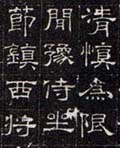 清慎為限
聞豫侍坐
節鎮西將